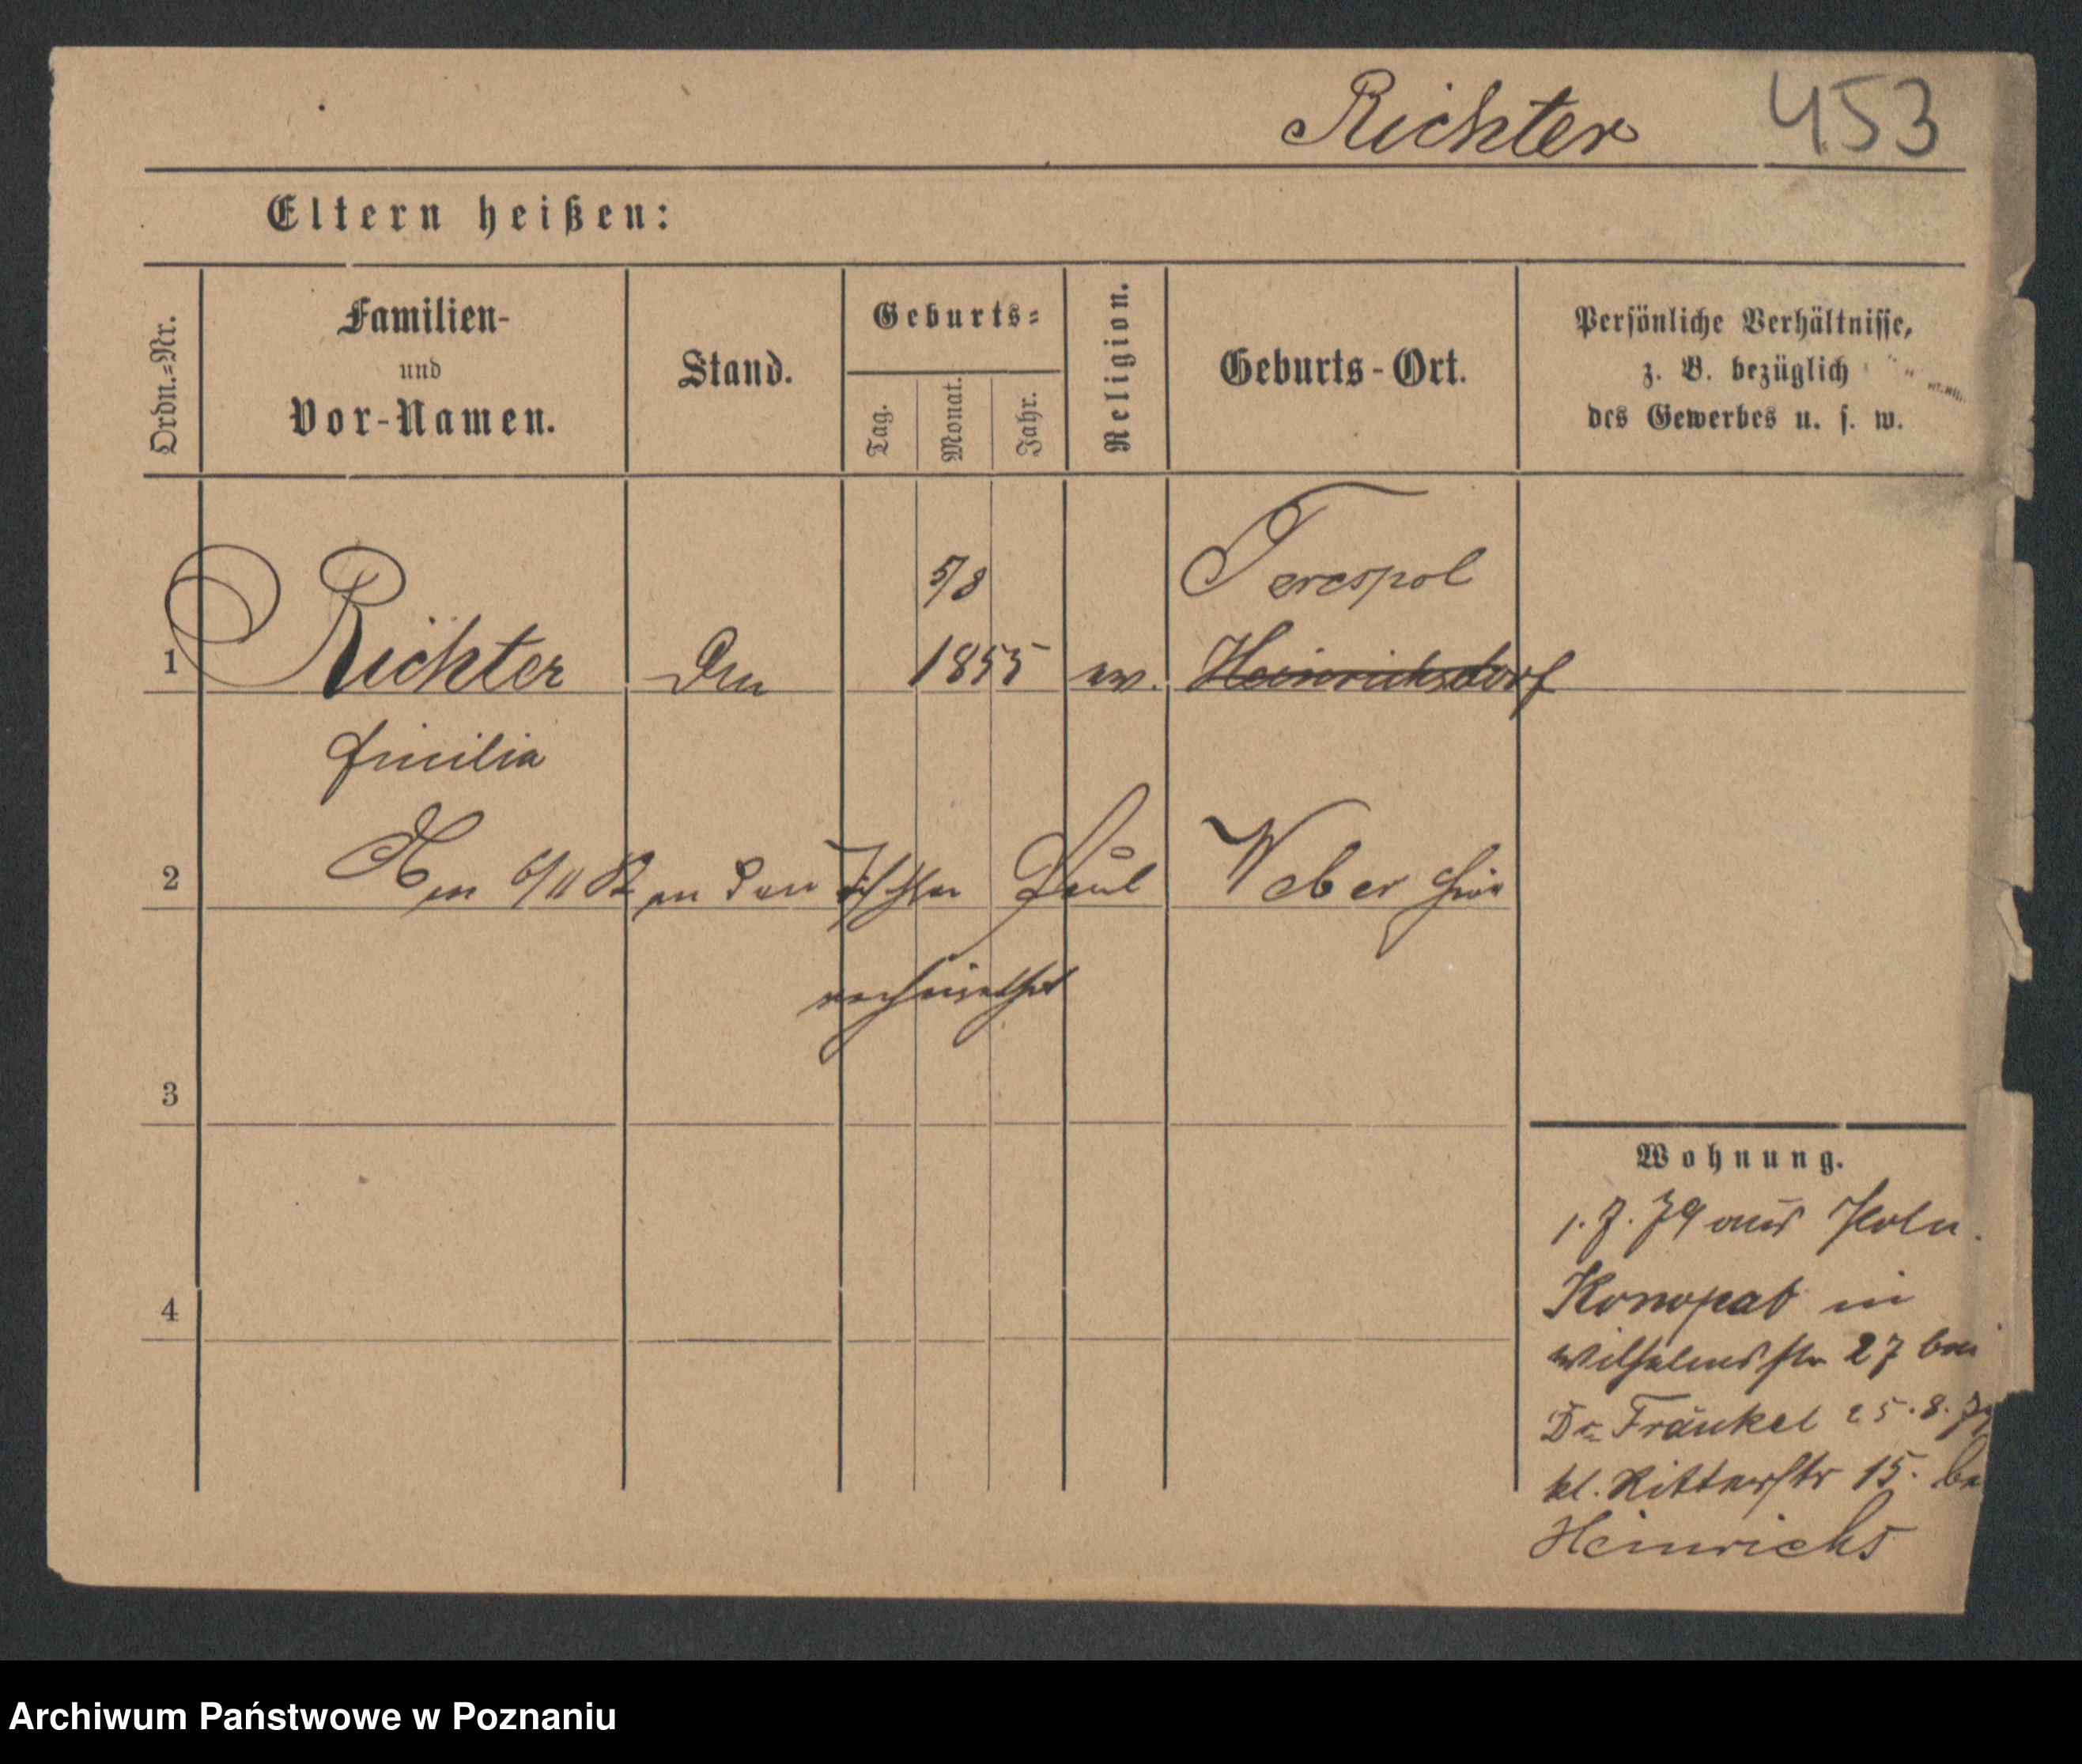 Richter 453
Eltern heißen:
Ordn.=Nr.
Familien-
und
Vor-Namen.
Stand.
Geburts=
Tag.
Monat.
Jahr.
Religion.
Geburts-Ort.
Persönliche Verhältnisse,
z. B. bezüglich
des Gewerbes u. s. w.
5/8 Terespol
1 Richter 1855 ev. Heinrichsdorf
2 Am 6/11 an den Tischler Paul Weber hier
verheirathet
3
4
Wohnung.
1.7.79 aus Poln.
Konopat in
Wilhelmsstr 27 bei
Dr Fränkel 25.8.79
kl. Ritterstr 15. be
Heinrichs
Archiwum Państwowe w Poznaniu